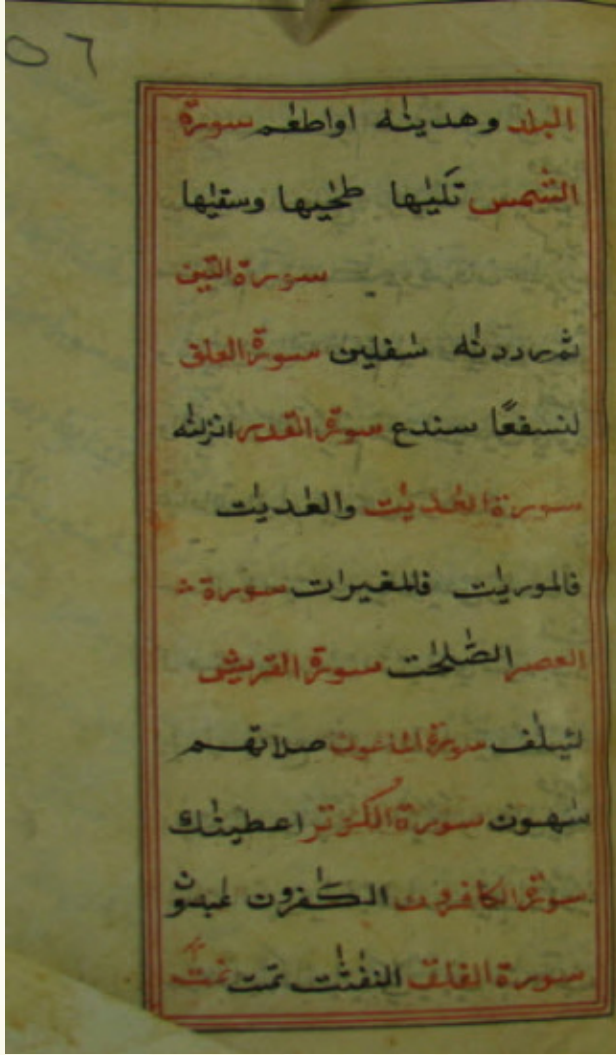 ٥٦
البلد وهدينٰه اواطعٰم سورة
الشمس تكليٰها طحٰيها وسقيٰها
سورة التين
ثم رددنٰه سٰفلين سورة العلق
لنسفعًا سندع سورة القدر انزلنٰه
سورة العٰديٰت والعٰديٰت
فالموريٰت فالمغيرات سورة
العصر الصّٰلحٰت سورة القريش
لئيلٰف سورة الماعون صلاتهم
سٰهون سورة الكوثر اعطينٰك
سورة الكافرون الكٰفرون عٰبدون
سورة الفلق النفّٰثٰت تمت تمت